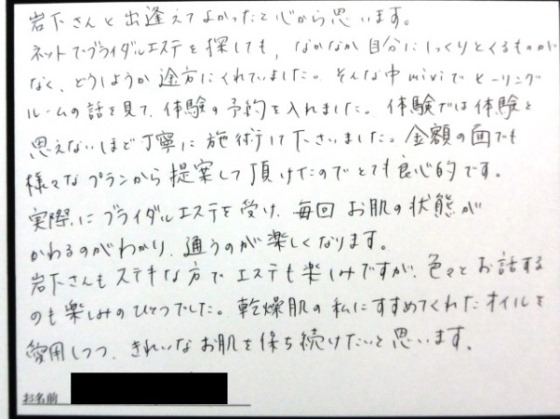 岩下さんと出逢えてよかったと心から思います。
ネットでブライダルエステを探しても、なかなか自分にしっくりとくるものが
なく、どうしようか途方にくれていました。そんな中mixiでヒーリング
ルームの話を見て、体験の予約を入れました。体験では体験と
思えないほど丁寧に施術して下さいました。金額の面でも
様々なプランから提案して頂けたのでとても良心的です。
実際にブライダルエステを受け、毎回お肌の状態が
かわるのがわかり、通うのが楽しくなります。
岩下さんもステキな方でエステも楽しみですが、色々とお話する
のも楽しみのひとつでした。乾燥肌の私にすすめてくれたオイルを
愛用しつつ、きれいなお肌を保ち続けたいと思います。
お名前